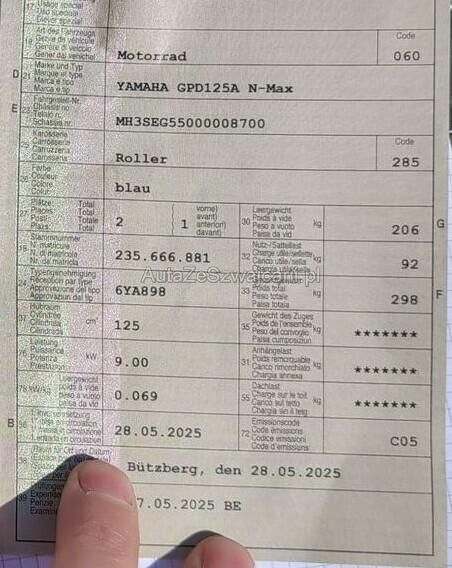 17 Usage spécial
Uso speciale
Diever spezial
Art des Fahrzeugs
19 Genre de véhicule
Genere di veicolo
Gener dal vehichel
Motorrad
Code
060
D 21 Marke und Typ
Marque et type
Marca e tipo
Marca e tip
YAMAHA GPD125A N-Max
E 23 Fahrgestell-Nr.
Châssis no
Telaio n.
Schassis nr.
MH3SEG55000008700
25 Karosserie
Carrosserie
Carrozzeria
Carossaria
Roller
Code
285
26 Farbe
Couleur
Colore
Colur
blau
27 Plätze: Total
Places: Total
Posti: Totale
Plazs: Total
2
{ 1
vorne)
avant)
anteriori)
davant)
30 Leergewicht
Poids à vide
Peso a vuoto
Paisa da vid
kg
206
G
18 Stammnummer
N. matricule
N. di matricola
Nr. da matricla
235.666.881
32 Nutz-/Sattellast
Charge utile/sellette
Carico utile/sella
Chargia utila/sella
kg
92
24 Typengenehmigung
Réception par type
Approvazione del tipo
Approvaziun dal tip
6YA898
33
Poids total
Peso totale
Paisa totala
kg
298
F
AutaZeSzwajcarii.pl
37 Hubraum
Cylindrée
Cilindrata
Cilindrada
cm³
125
35 Gewicht des Zuges
Poids de l'ensemble
Peso del convoglio
Paisa cumposiziun
kg
*******
76 Leistung
Puissance
Potenza
Prestaziun
kW
9.00
31 Anhängelast
Poids remorquable
Carico rimorchiato
Chargia annexa
kg
*******
78 kW/kg
Leergewicht
poids à vide
peso a vuoto
paisa da vid
0.069
55 Dachlast
Charge sur le toit
Carico sul tetto
Chargia sin il tetg
kg
*******
B 36 1. Inverkehrsetzung
1ère mise en circulation
1.a messa in circolazione
1. entrada en circulaziun
28.05.2025
72 Emissionscode
Code émissions
Codice emissioni
Code d'emissiuns
C05
38 Raum für Ort und Datum
Bützberg, den 28.05.2025
39
Expertise
Perizie
7.05.2025 BE